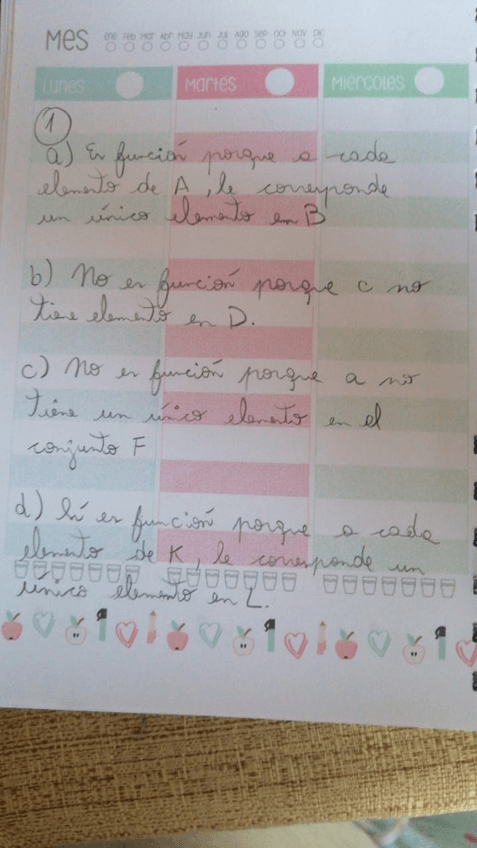 MES
Ene Feb Mar Abr May Jun Jul Ago Sep Oct Nov Dic
Lunes Martes Miércoles
1
a) Es función porque a cada
elemento de A, le corresponde
un único elemento en B
b) No es función porque c no
tiene elemento en D.
c) No es función porque a no
tiene un único elemento en el
conjunto F
d) Sí es función porque a cada
elemento de K, le corresponde un
único elemento en L.